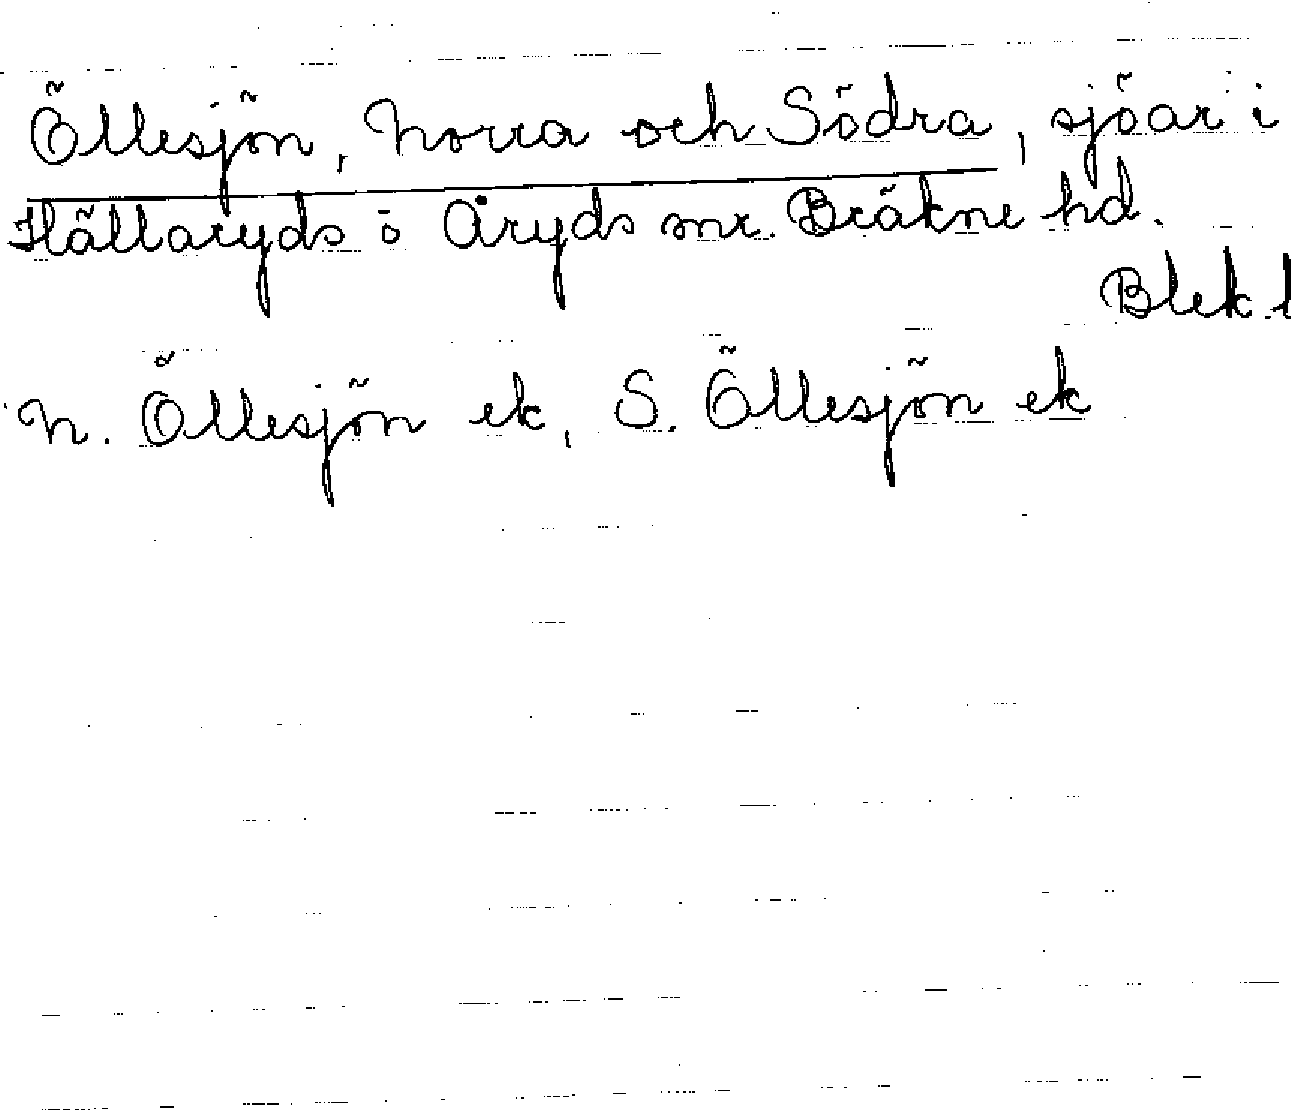 Öllesjön, Norra och Södra, sjöar i
Hällaryds o Åryds snr. Bräkne hd.
Blek. l
N. Öllesjön ek, S. Öllesjön ek